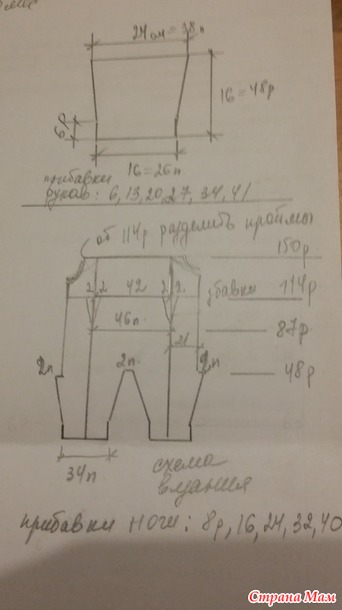 24см = 38п
16 = 48р
6р
16 = 26п
прибавки
рукав: 6, 13, 20, 27, 34, 41
от 114р разделить проймы
150р
2 2 42 2 2
бавки 114р
46п
87р
21
2п 2п 2п
48р
34п
схема
вязания
прибавки ноги: 8р, 16, 24, 32, 40
Страна Мам